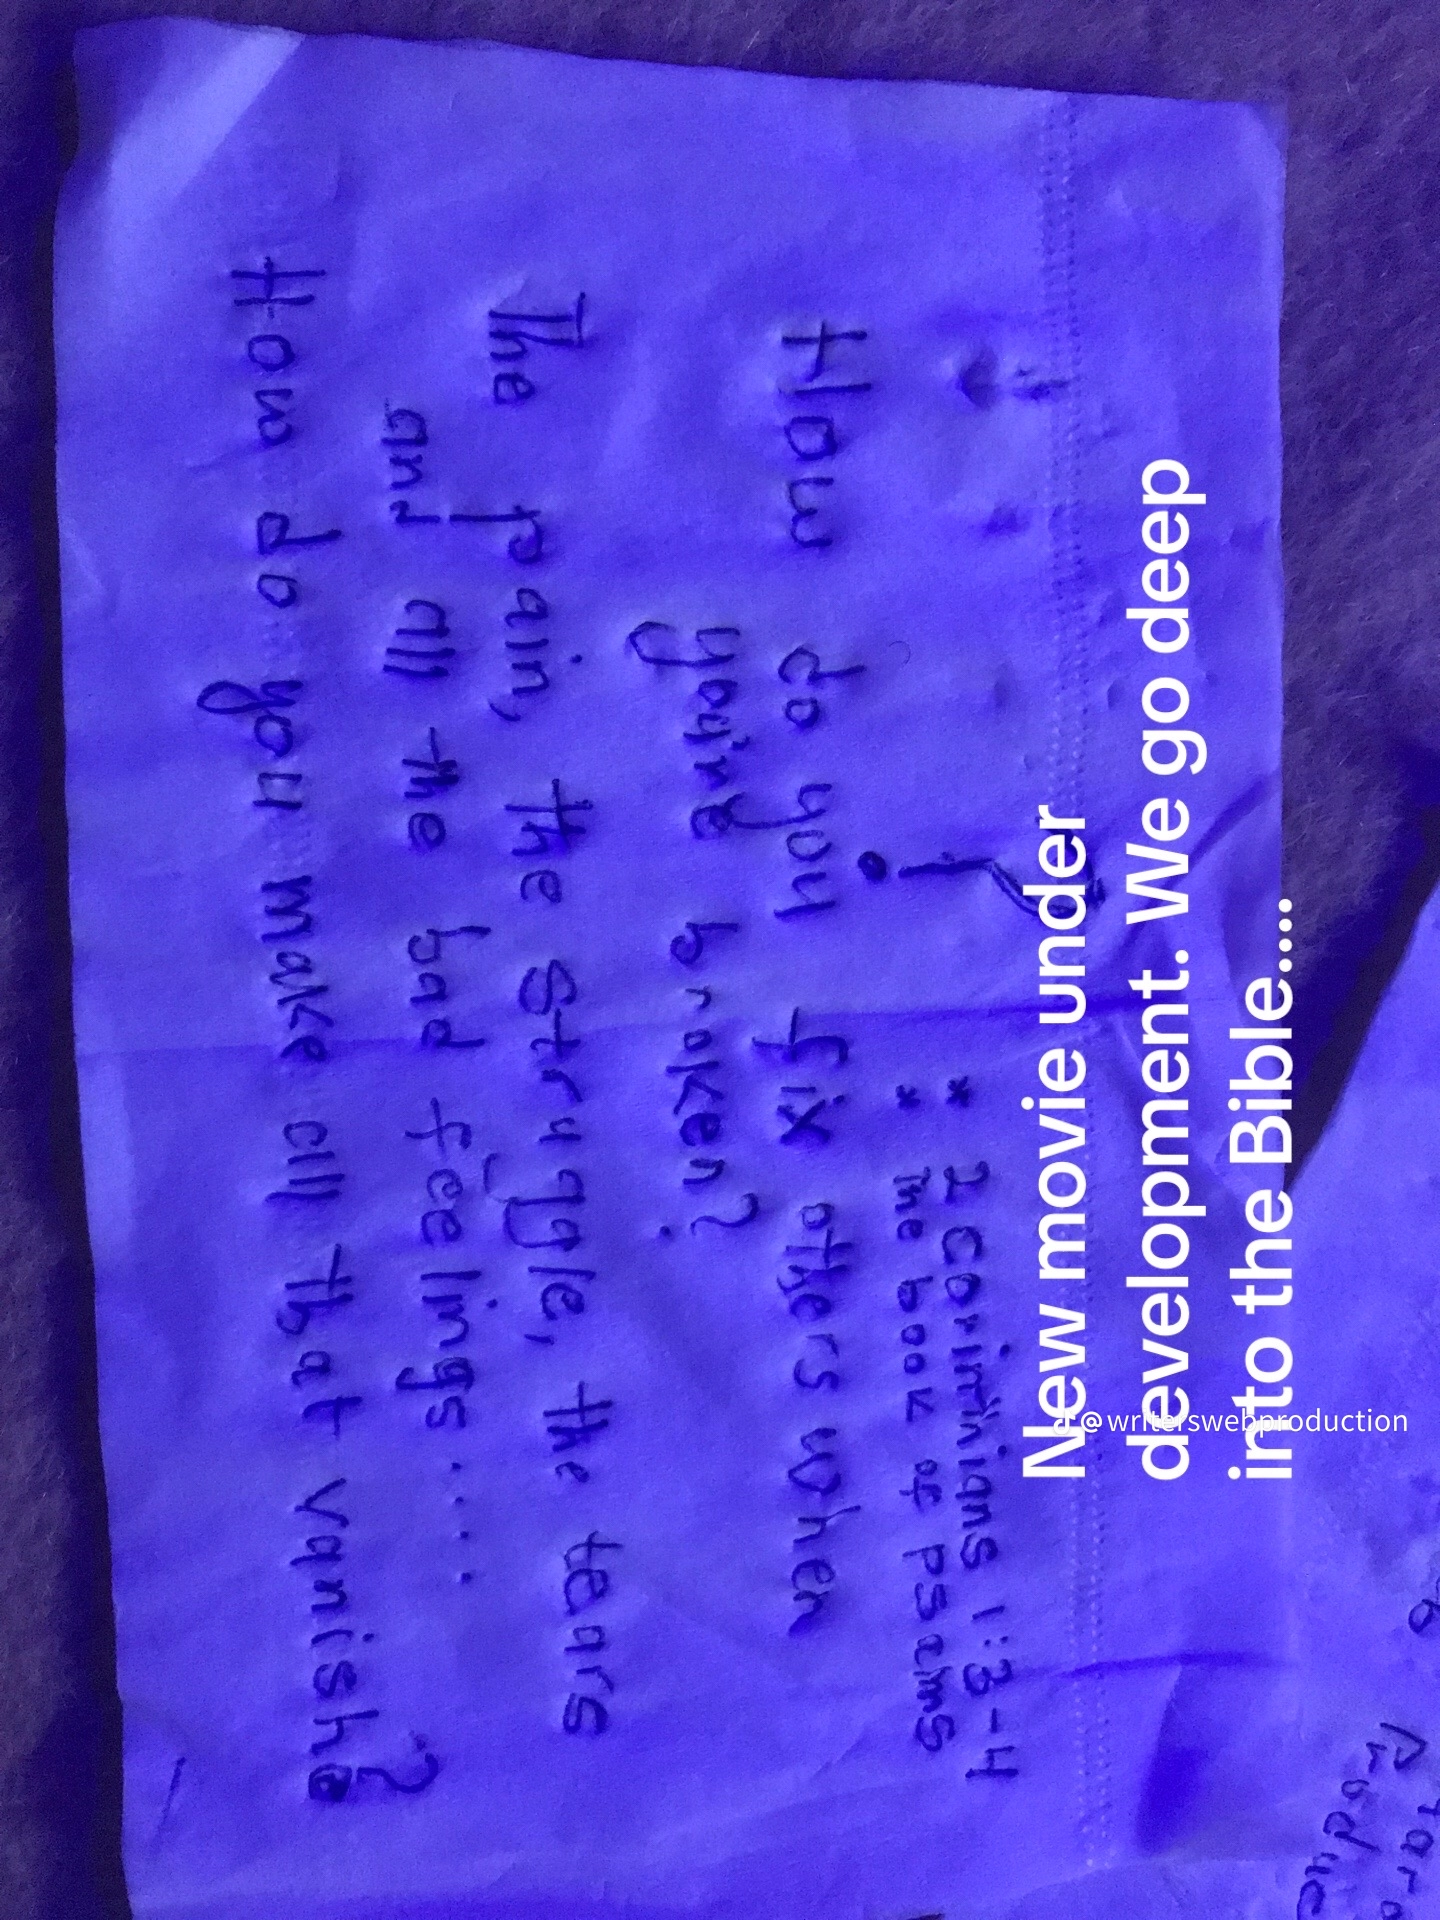 * 2 Corinthians 1:3-4
* The book of psalms
?
How do you fix others when
you're broken?
The pain, the struggle, the tears
and all the bad feelings....
How do you make all that vanish?
New movie under
development. We go deep
into the Bible....
@writerswebproduction